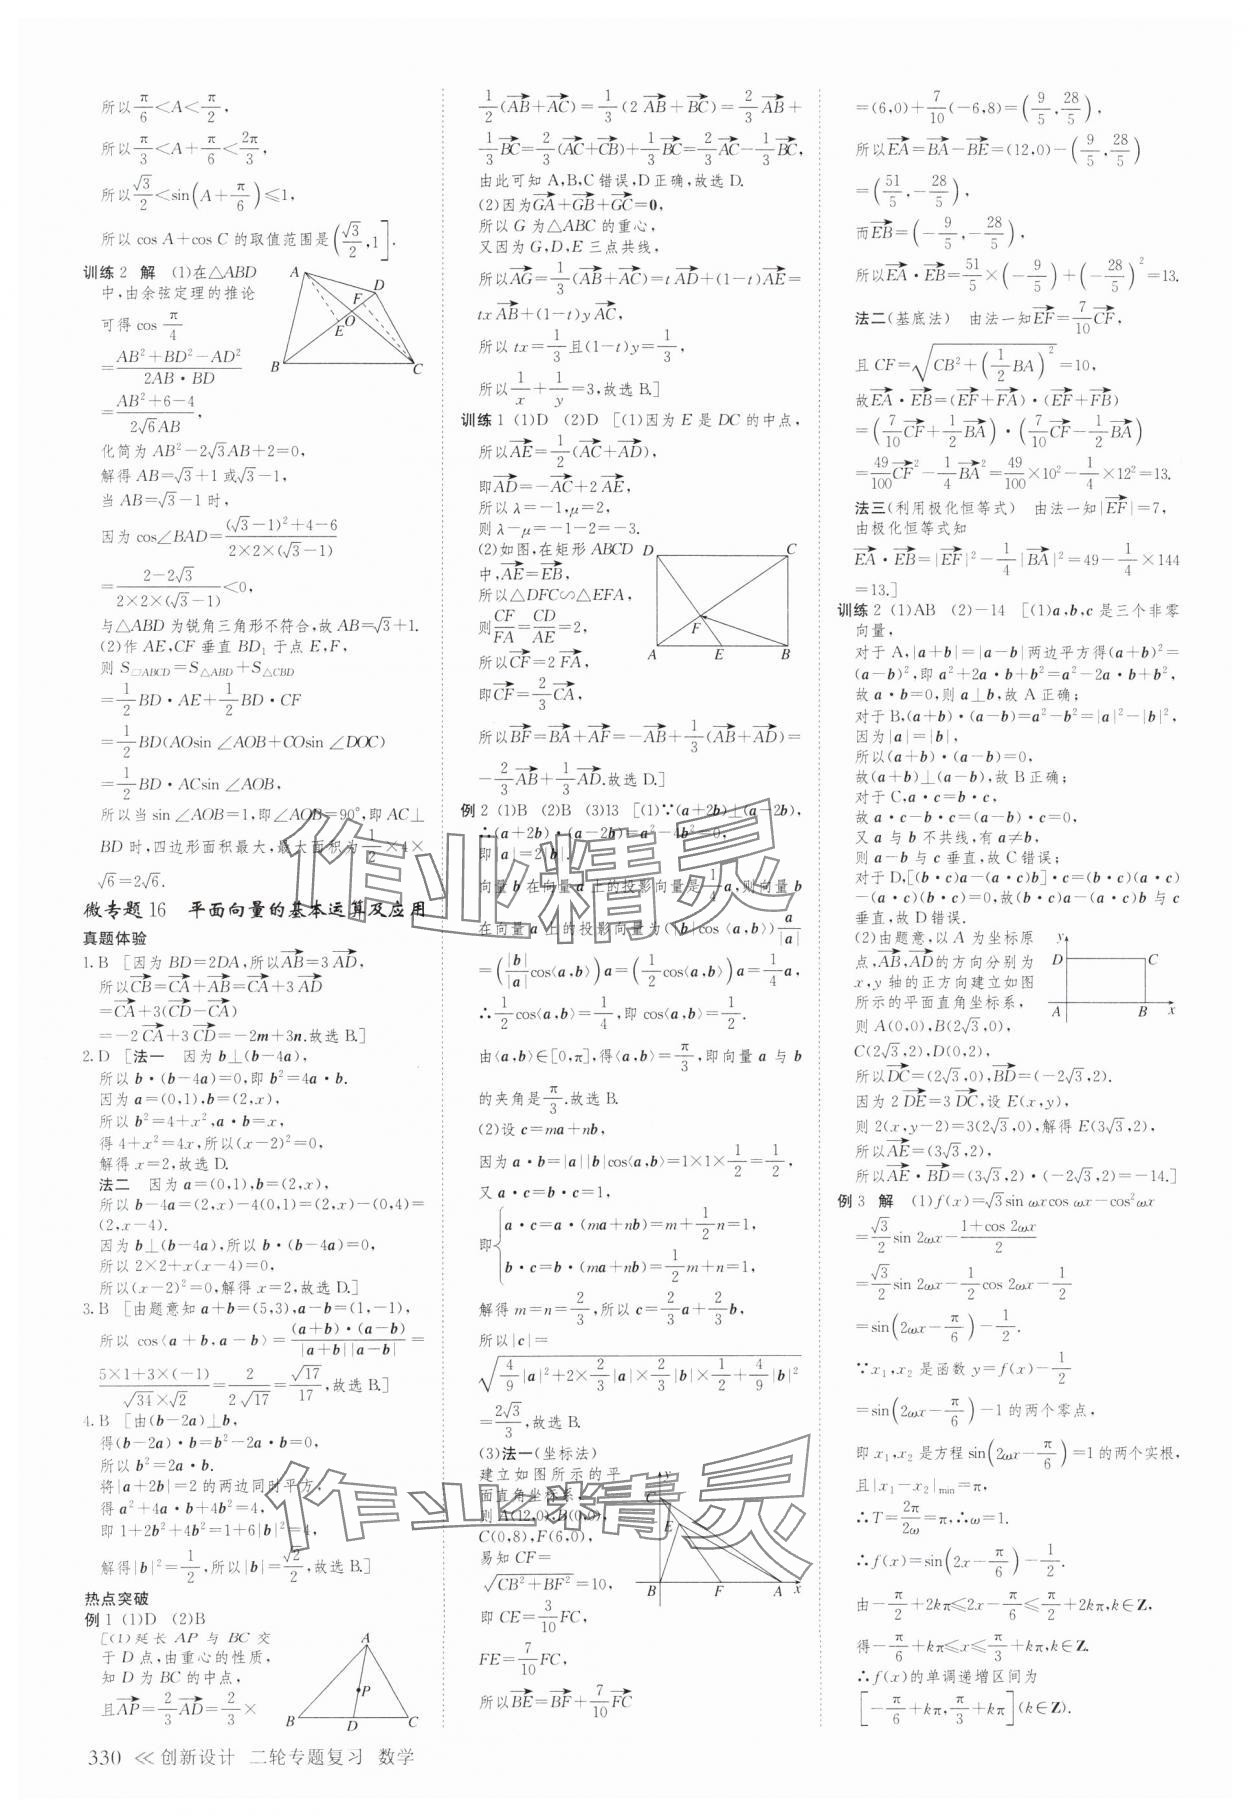 所以π/6<A<π/2,
所以π/3<A+π/6<2π/3,
所以√3/2<sin(A+π/6)≤1,
所以 cos A+cos C 的取值范围是(√3/2,1].
训练2 解 (1)在△ABD
中,由余弦定理的推论
可得 cos π/4
=(AB²+BD²-AD²)/(2AB·BD)
=(AB²+6-4)/(2√6AB),
化简为 AB²-2√3AB+2=0,
解得 AB=√3+1 或√3-1,
当 AB=√3-1 时,
因为 cos∠BAD=((√3-1)²+4-6)/(2×2×(√3-1))
=(2-2√3)/(2×2×(√3-1))<0,
与△ABD 为锐角三角形不符合,故 AB=√3+1.
(2)作 AE,CF 垂直 BD₁ 于点 E,F,
则 S▱ABCD=S△ABD+S△CBD
=1/2 BD·AE+1/2 BD·CF
=1/2 BD(AOsin∠AOB+COsin∠DOC)
=1/2 BD·ACsin∠AOB,
所以当 sin∠AOB=1,即∠AOB=90°,即 AC⊥
BD 时,四边形面积最大,最大面积为1/2×4×
√6=2√6.
微专题16 平面向量的基本运算及应用
真题体验
1.B [因为 BD=2DA,所以AB→=3AD→,
所以CB→=CA→+AB→=CA→+3AD→
=CA→+3(CD→-CA→)
=-2CA→+3CD→=-2m+3n.故选 B.]
2.D [法一 因为 b⊥(b-4a),
所以 b·(b-4a)=0,即 b²=4a·b.
因为 a=(0,1),b=(2,x),
所以 b²=4+x²,a·b=x,
得 4+x²=4x,所以(x-2)²=0,
解得 x=2,故选 D.
法二 因为 a=(0,1),b=(2,x),
所以 b-4a=(2,x)-4(0,1)=(2,x)-(0,4)=
(2,x-4).
因为 b⊥(b-4a),所以 b·(b-4a)=0,
所以 2×2+x(x-4)=0,
所以(x-2)²=0,解得 x=2,故选 D.]
3.B [由题意知 a+b=(5,3),a-b=(1,-1),
所以 cos⟨a+b,a-b⟩=(a+b)·(a-b)/(|a+b||a-b|)=
(5×1+3×(-1))/(√34×√2)=2/(2√17)=√17/17,故选 B.]
4.B [由(b-2a)⊥b,
得(b-2a)·b=b²-2a·b=0,
所以 b²=2a·b.
将|a+2b|=2 的两边同时平方,
得 a²+4a·b+4b²=4,
即 1+2b²+4b²=1+6|b|²=4,
解得|b|²=1/2,所以|b|=√2/2,故选 B.]
热点突破
例1 (1)D (2)B
[(1)延长 AP 与 BC 交
于 D 点,由重心的性质,
知 D 为 BC 的中点,
且AP→=2/3AD→=2/3×
A
P
B D C
A D F O E B C
330 ≪ 创新设计 二轮专题复习 数学
1/2(AB→+AC→)=1/3(2AB→+BC→)=2/3AB→+
1/3BC→=2/3(AC→+CB→)+1/3BC→=2/3AC→-1/3BC→,
由此可知 A,B,C 错误,D 正确,故选 D.
(2)因为GA→+GB→+GC→=0,
所以 G 为△ABC 的重心,
又因为 G,D,E 三点共线,
所以AG→=1/3(AB→+AC→)=tAD→+(1-t)AE→=
txAB→+(1-t)yAC→,
所以 tx=1/3且(1-t)y=1/3,
所以1/x+1/y=3,故选 B.]
训练1 (1)D (2)D [(1)因为 E 是 DC 的中点,
所以AE→=1/2(AC→+AD→),
即AD→=-AC→+2AE→,
所以 λ=-1,μ=2,
则 λ-μ=-1-2=-3.
(2)如图,在矩形 ABCD
中,AE→=EB→,
所以△DFC∽△EFA,
则CF/FA=CD/AE=2,
所以CF→=2FA→,
即CF→=2/3CA→,
D C
F
A E B
所以BF→=BA→+AF→=-AB→+1/3(AB→+AD→)=
-2/3AB→+1/3AD→.故选 D.]
例2 (1)B (2)B (3)13 [(1)∵(a+2b)⊥(a-2b),
∴(a+2b)·(a-2b)=a²-4b²=0,
即|a|=2|b|.
向量 b 在向量 a 上的投影向量是1/4a,则向量 b
在向量 a 上的投影向量为(|b|cos⟨a,b⟩)a/|a|
=(|b|/|a| cos⟨a,b⟩)a=(1/2cos⟨a,b⟩)a=1/4a,
∴1/2cos⟨a,b⟩=1/4,即 cos⟨a,b⟩=1/2.
由⟨a,b⟩∈[0,π],得⟨a,b⟩=π/3,即向量 a 与 b
的夹角是π/3.故选 B.
(2)设 c=ma+nb,
因为 a·b=|a||b|cos⟨a,b⟩=1×1×1/2=1/2,
又 a·c=b·c=1,
即{a·c=a·(ma+nb)=m+1/2n=1,
b·c=b·(ma+nb)=1/2m+n=1,
解得 m=n=2/3,所以 c=2/3a+2/3b,
所以|c|=
√(4/9|a|²+2×2/3|a|×2/3|b|×1/2+4/9|b|²)
=2√3/3,故选 B.
(3)法一(坐标法)
建立如图所示的平
面直角坐标系,
则 A(12,0),B(0,0),
C(0,8),F(6,0),
易知 CF=
√(CB²+BF²)=10,
即 CE=3/10FC,
FE=7/10FC,
所以BE→=BF→+7/10FC→
y C E B F A x
=(6,0)+7/10(-6,8)=(9/5,28/5),
所以EA→=BA→-BE→=(12,0)-(9/5,28/5)
=(51/5,-28/5),
而EB→=(-9/5,-28/5),
所以EA→·EB→=51/5×(-9/5)+(-28/5)²=13.
法二(基底法) 由法一知EF→=7/10CF→,
且 CF=√(CB²+(1/2BA)²)=10,
故EA→·EB→=(EF→+FA→)·(EF→+FB→)
=(7/10CF→+1/2BA→)·(7/10CF→-1/2BA→)
=49/100CF→²-1/4BA→²=49/100×10²-1/4×12²=13.
法三(利用极化恒等式) 由法一知|EF→|=7,
由极化恒等式知
EA→·EB→=|EF→|²-1/4|BA→|²=49-1/4×144
=13.]
训练2 (1)AB (2)-14 [(1)a,b,c 是三个非零
向量,
对于 A,|a+b|=|a-b|两边平方得(a+b)²=
(a-b)²,即 a²+2a·b+b²=a²-2a·b+b²,
故 a·b=0,则 a⊥b,故 A 正确;
对于 B,(a+b)·(a-b)=a²-b²=|a|²-|b|²,
因为|a|=|b|,
所以(a+b)·(a-b)=0,
故(a+b)⊥(a-b),故 B 正确;
对于 C,a·c=b·c,
故 a·c-b·c=(a-b)·c=0,
又 a 与 b 不共线,有 a≠b,
则 a-b 与 c 垂直,故 C 错误;
对于 D,[(b·c)a-(a·c)b]·c=(b·c)(a·c)
-(a·c)(b·c)=0,故(b·c)a-(a·c)b 与 c
垂直,故 D 错误.
(2)由题意,以 A 为坐标原
点,AB→,AD→的方向分别为
x,y 轴的正方向建立如图
所示的平面直角坐标系,
则 A(0,0),B(2√3,0),
C(2√3,2),D(0,2),
y D C A B x
所以DC→=(2√3,0),BD→=(-2√3,2).
因为 2DE→=3DC→,设 E(x,y),
则 2(x,y-2)=3(2√3,0),解得 E(3√3,2),
所以AE→=(3√3,2),
所以AE→·BD→=(3√3,2)·(-2√3,2)=-14.]
例3 解 (1)f(x)=√3sin ωxcos ωx-cos²ωx
=√3/2sin 2ωx-(1+cos 2ωx)/2
=√3/2sin 2ωx-1/2cos 2ωx-1/2
=sin(2ωx-π/6)-1/2.
∵x₁,x₂ 是函数 y=f(x)-1/2
=sin(2ωx-π/6)-1 的两个零点,
即 x₁,x₂ 是方程 sin(2ωx-π/6)=1 的两个实根,
且|x₁-x₂|min=π,
∴T=2π/2ω=π,∴ω=1.
∴f(x)=sin(2x-π/6)-1/2.
由-π/2+2kπ≤2x-π/6≤π/2+2kπ,k∈Z,
得-π/6+kπ≤x≤π/3+kπ,k∈Z.
∴f(x)的单调递增区间为
[-π/6+kπ,π/3+kπ](k∈Z).
作业精灵
作业精灵